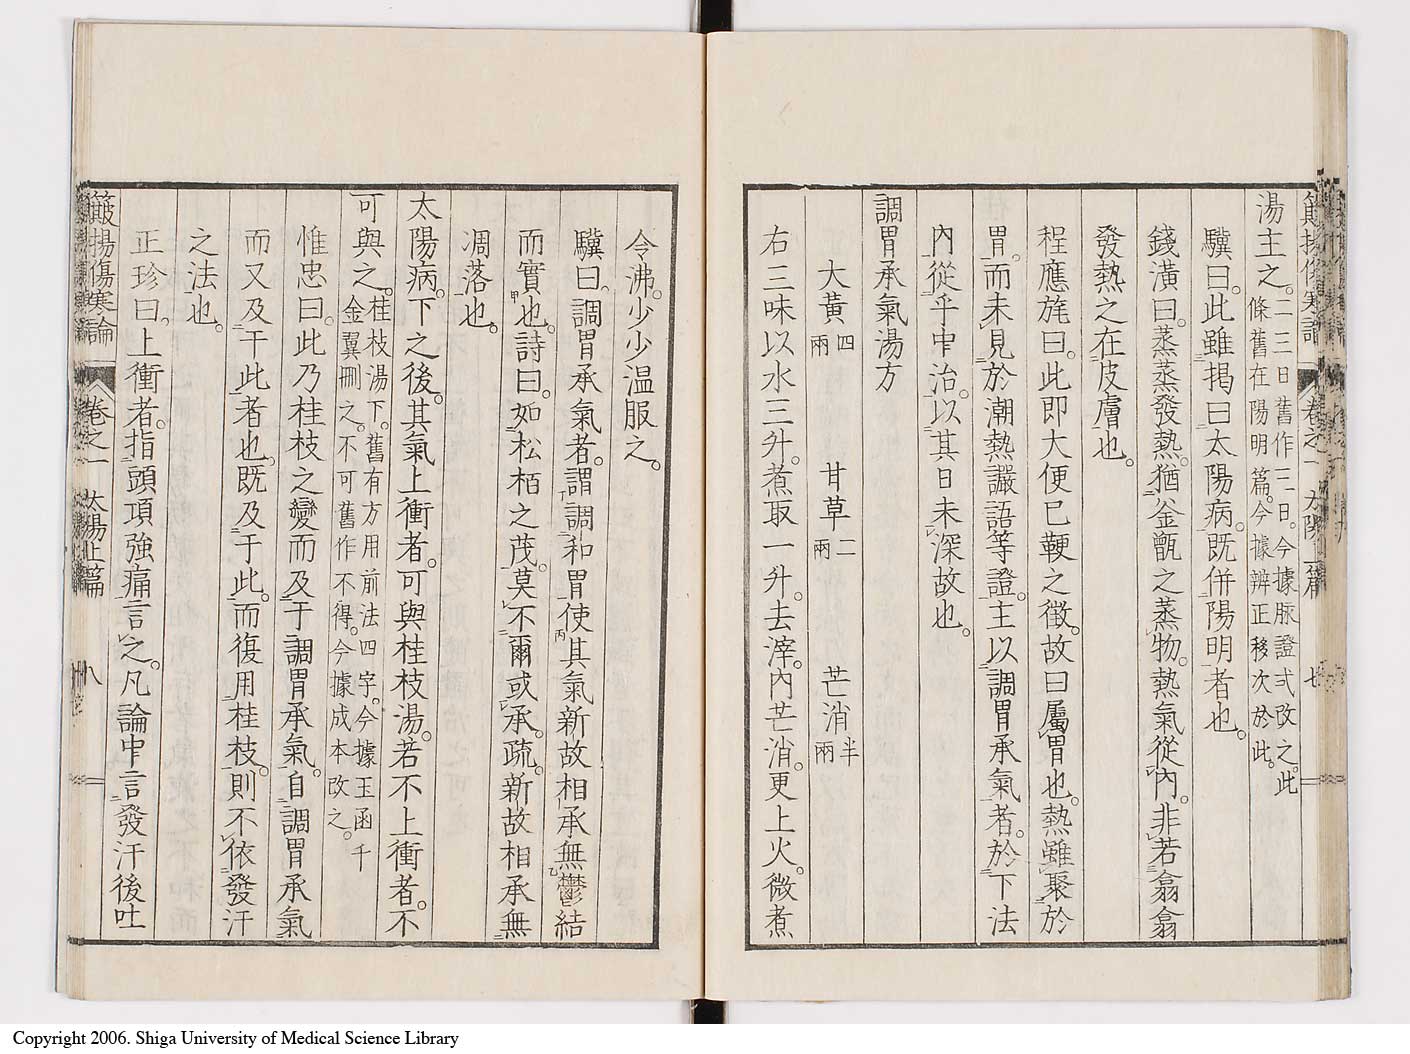 湯主之。二三日舊作三日。今據脈證式改之。此
條舊在陽明篇。今據辨正移次於此。
驥曰。此雖揭曰太陽病。既併陽明者也。
錢潢曰。蒸蒸發熱。猶釜甑之蒸物。熱氣從內。非若翕翕
發熱之在皮膚也。
程應旄曰。此即大便已鞕之徵。故曰屬胃也。熱雖聚於
胃。而未見於潮熱讝語等證。主以調胃承氣者。於下法
內從乎中治。以其日未深故也。
調胃承氣湯方
大黃四兩 甘草二兩 芒消半兩
右三味以水三升。煮取一升。去滓。內芒消。更上火。微煮
令沸。少少温服之。
驥曰。調胃承氣者。謂調和胃使其氣新故相承無鬱結
而實也。詩曰。如松栢之茂。莫不爾或承。疏。新故相承無
凋落也。
太陽病。下之後。其氣上衝者。可與桂枝湯。若不上衝者。不
可與之。桂枝湯下。舊有方用前法四字。今據玉函千
金翼刪之。不可舊作不得。今據成本改之。
惟忠曰。此乃桂枝之變而及于調胃承氣。自調胃承氣
而又及于此者也。既及于此。而復用桂枝。則不依發汗
之法也。
正珍曰。上衝者。指頭項強痛言之。凡論中言發汗後吐
簸揚傷寒論 卷之一 太陽上篇 八
Copyright 2006. Shiga University of Medical Science Library